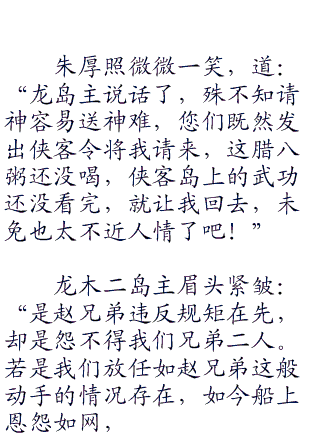 朱厚照微微一笑，道：
“龙岛主说话了，殊不知请
神容易送神难，您们既然发
出侠客令将我请来，这腊八
粥还没喝，侠客岛上的武功
还没看完，就让我回去，未
免也太不近人情了吧！”
龙木二岛主眉头紧皱：
“是赵兄弟违反规矩在先，
却是怨不得我们兄弟二人。
若是我们放任如赵兄弟这般
动手的情况存在，如今船上
恩怨如网，